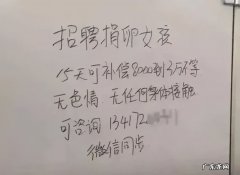 招聘捐卵女孩
15天可补偿8000到3.5万不等
无色情 无任何身体接触
可咨询 134172
微信同步
广东龙网